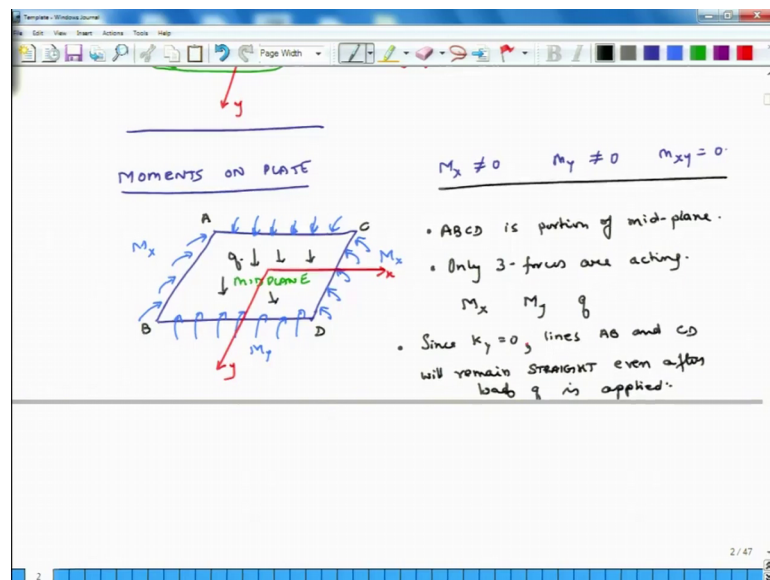 Template - Windows Journal
File Edit View Insert Actions Tools Help
Page Width
B I
y
MOMENTS ON PLATE
Mx ≠ 0 My ≠ 0 mxy = 0.
A
C
Mx
q
Mx
x
MIDPLANE
B
D
My
y
• ABCD is portion of mid-plane.
• Only 3-forces are acting.
Mx My q
• Since Ky = 0, lines AB and CD
will remain STRAIGHT even after
q is applied.
2 / 47
2